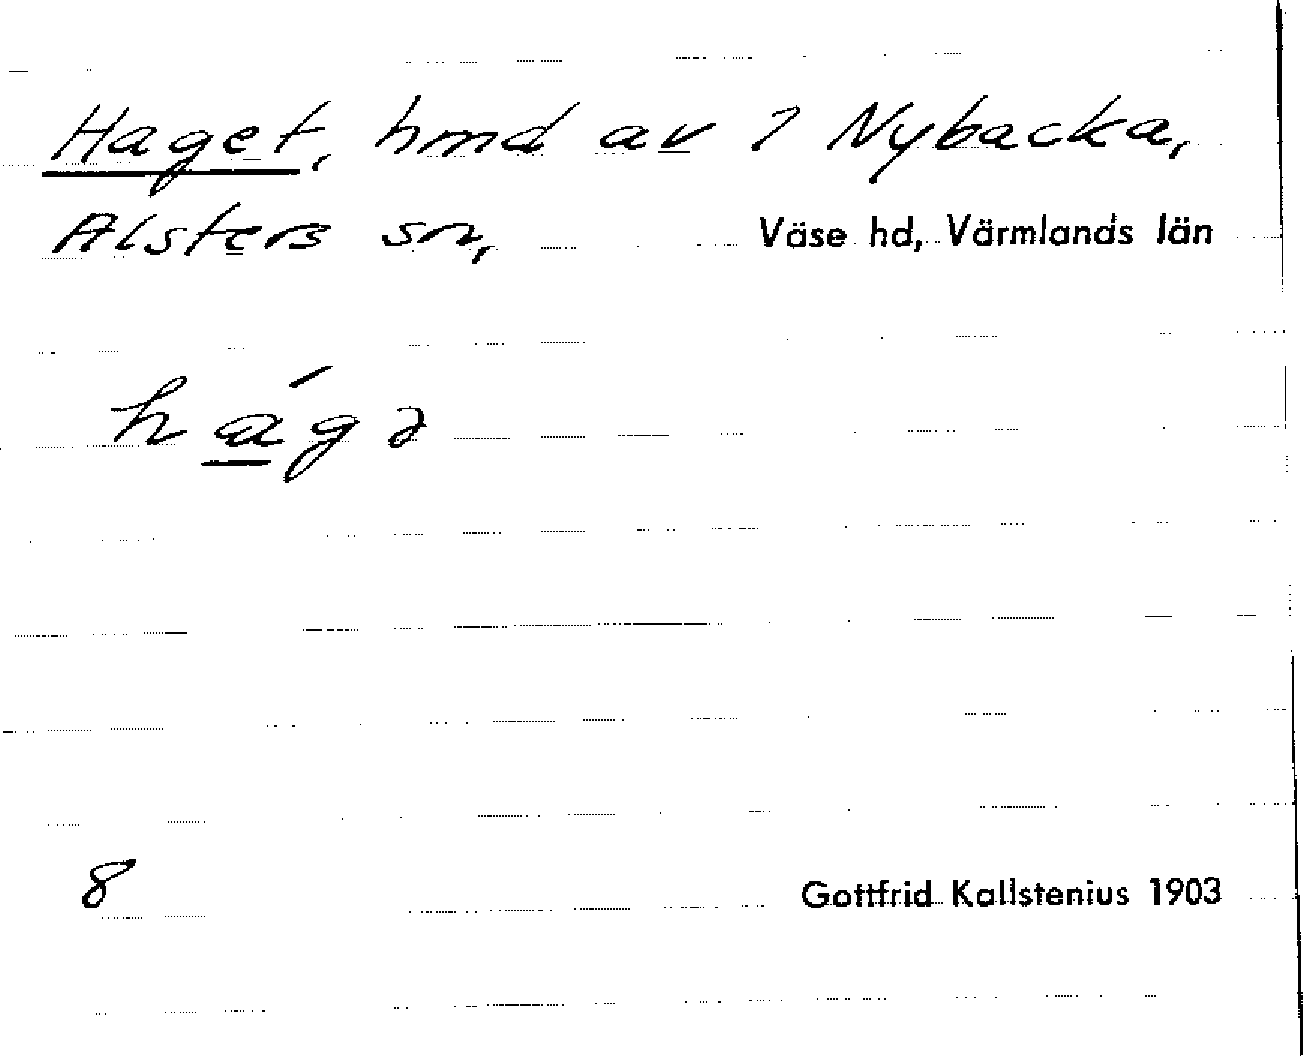 Haget, hmd av 1 Nybacka,
Alsters sn, Väse hd, Värmlands län
hág∂
8 Gottfrid Kallstenius 1903